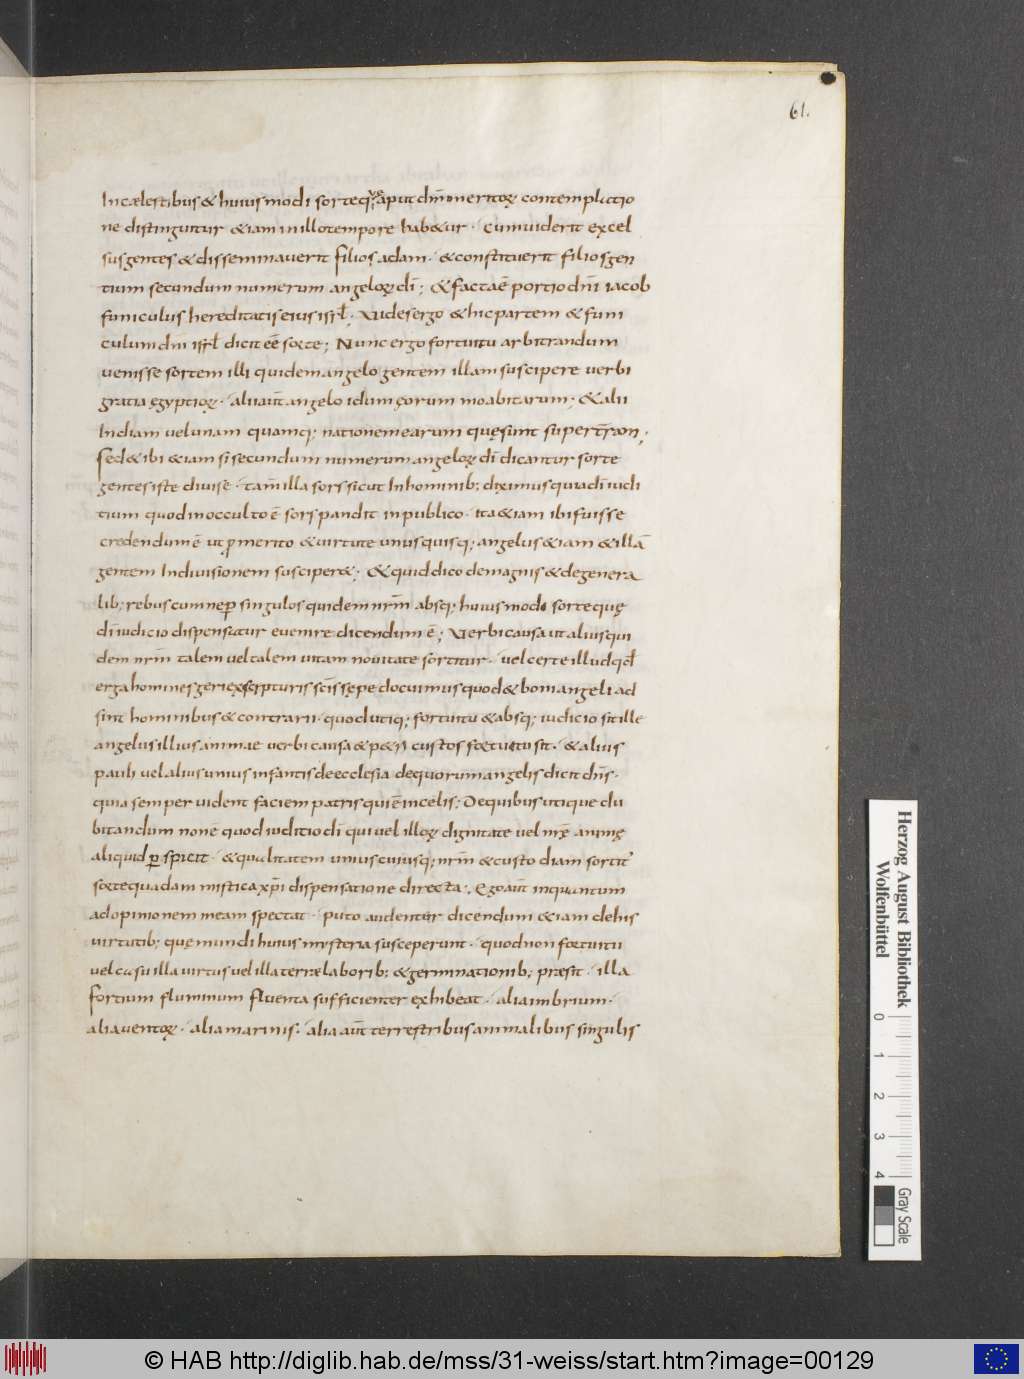 61.
In cælestibus & huiusmodi sorteq; apud dm̄ meritoꝝ contemplatio
ne distinguitur & iam in illo tempore hab&ur · Cum uiderit excel
sus gentes & disseminauerit filios adam · & constituerit filios gen
tium secundum numerum angeloꝝ dī ; & facta ē portio dnī iacob
funiculus hereditatis eius isrl̄ · Uides ergo & hic partem & funi
culum dnī isrl̄ dicit eē sorte ; Nunc ergo fortuitu arbitrandum
uenisse sortem illi quidem angelo gentem illam suscipere uerbi
gratia ęgyptioꝝ · alii aūt angelo idumęorum moabitarum ; & alii
Indiam uel unam quamq; nationem earum quę sunt super terram ;
sed & ibi & iam si secundum numerum angeloꝝ dī dicantur sorte
gentes iste diuise · tam̄ illa sors sicut In hominib; diximus quia dī iudi
tium quod in occulto ē sors pandit in publico · ita & iam ibi fuisse
credendum ē ut ꝓ merito & uirtute unusquisq; angelus & iam & illā
gentem In diuisionem susciper& ; & quid dico de magnis & de genera
lib; rebus cum neꝑ singulos quidem nrm̄ absq; huiusmodi sorte quę
dī iudicio dispensatur euenire dicendum ē ; Uerbi causa ut alius qui
dem nrm̄ talem uel talem uitam nouitate sortitur · uel certe illud qd̄
erga homines geri ex scripturis scīs sepe docuimus quod & boni angeli ad
sint hominibus & contrarii · quod utiq; fortuitu & absq; iudicio sit ille
angelus illius animae uerbi causa & p&ri custos fortuitu sit · & alius
pauli uel alius unius infantis de ecclesia de quorum angelis dicit dn̄s ·
quia semper uident faciem patris qui ē in celis ; De quibus utique du
bitandum non ē quod iuditio dī qui uel illoꝝ dignitate uel nrę̄ animę
aliquid ꝑspicit · & qualitatem uniuscuiusq; nrm̄ & custodiam sortit̄
sorte quadam mistica xp̄i dispensatione directa · Ego aūt in quantum
ad opinionem meam spectat · puto audenter dicendum & iam de his
uirtutib; quę mundi huius mysteria susceperunt · quod non fortuitu
uel casu illa uirtus uel illa terrae laborib; & germinationib; præsit · illa
fortium fluminum fluenta sufficienter exhibeat · alia imbrium ·
alia uentoꝝ · alia marinis · alia aūt terrestribus animalibus singulis
Herzog August Bibliothek
Wolfenbüttel
0 1 2 3 4
Gray Scale
© HAB http://diglib.hab.de/mss/31-weiss/start.htm?image=00129